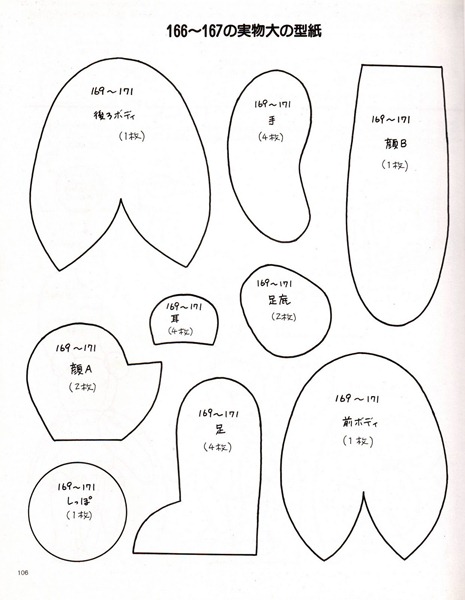 166～167の実物大の型紙
169～171
後ろボディ
(1枚)
169～171
手
(4枚)
169～171
顔B
(1枚)
169～171
耳
(4枚)
169～171
足底
(2枚)
169～171
顔A
(2枚)
169～171
足
(4枚)
169～171
前ボディ
(1枚)
169～171
しっぽ
(1枚)
106